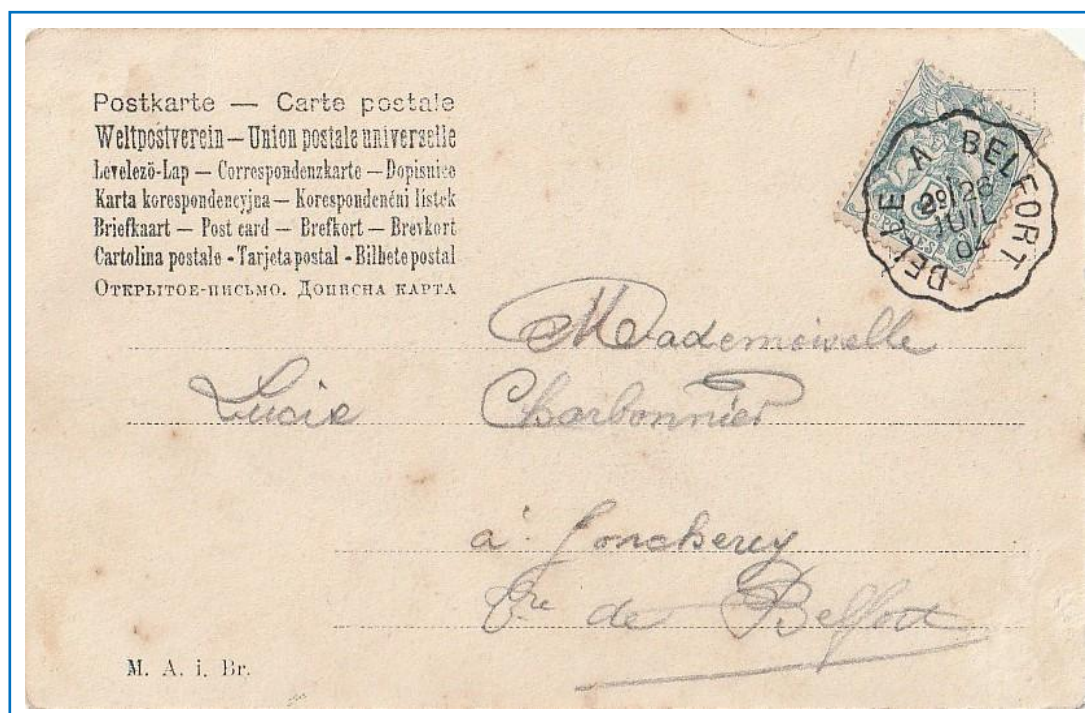 Postkarte — Carte postale
Weltpostverein — Union postale universelle
Levelező-Lap — Correspondenzkarte — Dopisnice
Karta korespondencyjna — Korespondenční lístek
Briefkaart — Post card — Brefkort — Brevkort
Cartolina postale - Tarjeta postal - Bilhete postal
Открытое-письмо. Дописна карта
DELLE A BELFORT
28
JUIL
04
POSTES
Mademoiselle
Lucie Charbonnier
à Joncherey
Tre de Belfort
M. A. i. Br.